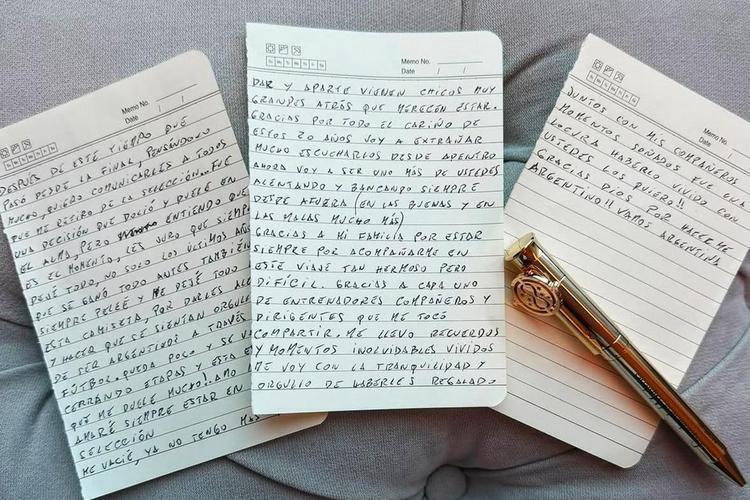 Memo No.
Date / /
DESPUÉS DE ESTE TIEMPO QUE
PASÓ DESDE LA FINAL, PENSÁNDOLO
MUCHO, QUIERO COMUNICARLES A TODOS
QUE ME RETIRO DE LA SELECCIÓN. FUE
UNA DECISIÓN QUE DOLIÓ Y DUELE EN
EL ALMA, PERO ENTIENDO QUE
ES EL MOMENTO, LES JURO QUE SIEMPRE
DEJÉ TODO, NO SOLO LOS ÚLTIMOS AÑOS
QUE SE GANÓ TODO ANTES TAMBIÉN
SIEMPRE PELEÉ Y ME DEJÉ TODO
ESTA CAMISETA, POR DARLES ALE
Y HACER QUE SE SIENTAN ORGULL
DE SER ARGENTINOS A TRAVÉS
FÚTBOL. QUEDA POCO Y SE V
CERRANDO ETAPAS Y ESTA E
QUE ME DUELE MUCHO! AMO
AMARÉ SIEMPRE ESTAR EN
SELECCIÓN
ME VACIÉ, YA NO TENGO MÁS
Memo No.
Date / /
DAR Y APARTE VIENEN CHICOS MUY
GRANDES ATRÁS QUE MERECEN ESTAR.
GRACIAS POR TODO EL CARIÑO DE
ESTOS 20 AÑOS VOY A EXTRAÑAR
MUCHO ESCUCHARLOS DESDE ADENTRO
AHORA VOY A SER UNO MÁS DE USTEDES
ALENTANDO Y BANCANDO SIEMPRE
DESDE AFUERA (EN LAS BUENAS Y EN
LAS MALAS MUCHO MÁS)
GRACIAS A MI FAMILIA POR ESTAR
SIEMPRE POR ACOMPAÑARME EN
ESTE VIAJE TAN HERMOSO PERO
DIFÍCIL. GRACIAS A CADA UNO
DE ENTRENADORES COMPAÑEROS Y
DIRIGENTES QUE ME TOCÓ
COMPARTIR. ME LLEVO RECUERDOS
Y MOMENTOS INOLVIDABLES VIVIDOS
ME VOY CON LA TRANQUILIDAD Y
ORGULLO DE HABERLES REGALADO
Memo No.
Date /
JUNTOS CON MIS COMPAÑEROS
MOMENTOS SOÑADOS FUE UNA
LOCURA HABERLO VIVIDO CON
USTEDES LOS QUIERO!!
GRACIAS DIOS POR HACERME
ARGENTINO!! VAMOS ARGENTINA